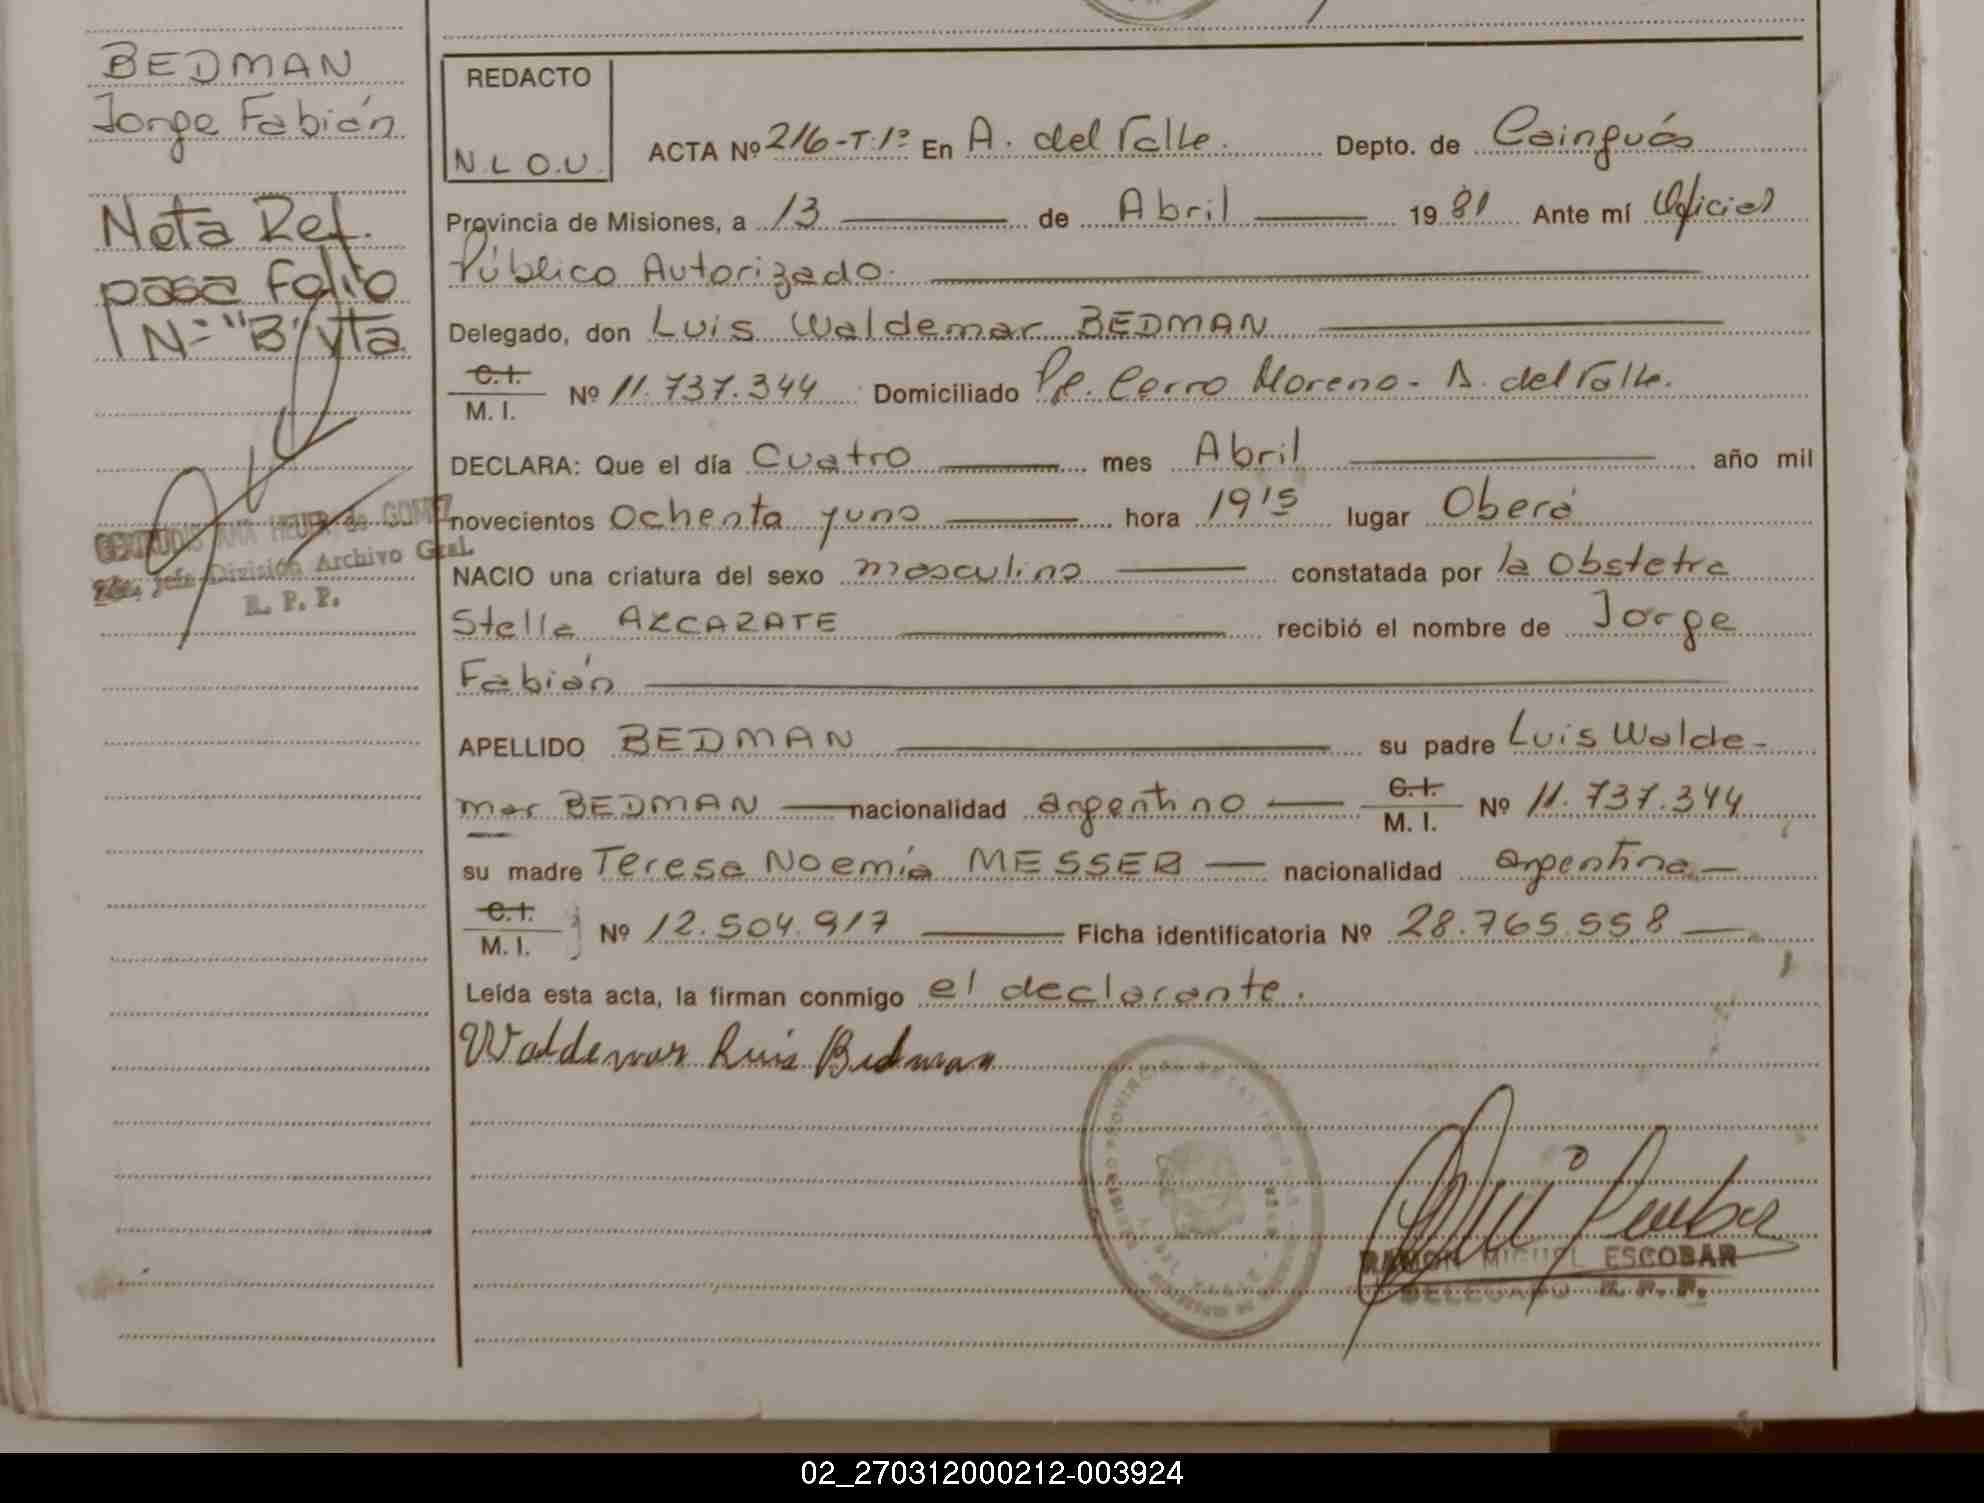 BEDMAN
Jorge Fabián
Nota Ref.
pasa folio
N= "B" vta
GERTRUDIS ANA HEUER de GOMEZ
Jefe División Archivo Gral.
R. P. P.
REDACTO
N.L.O.U.
ACTA Nº 216-T:1º En A. del Valle. Depto. de Cainguás
Provincia de Misiones, a 13 de Abril 1981 Ante mí Oficial
Público Autorizado.
Delegado, don Luis Waldemar BEDMAN
C.I.
M. I. Nº 11.737.344 Domiciliado Pje. Cerro Moreno - A. del Valle.
DECLARA: Que el día Cuatro mes Abril año mil
novecientos Ochenta y uno hora 19'15 lugar Oberá
NACIO una criatura del sexo masculino constatada por la Obstetra
Stella AZCARATE recibió el nombre de Jorge
Fabián
APELLIDO BEDMAN su padre Luis Walde-
mar BEDMAN nacionalidad argentino C.I. M. I. Nº 11.737.344
su madre Teresa Noemía MESSER nacionalidad argentina
C.I.
M. I. Nº 12.504.917 Ficha identificatoria Nº 28.765.558
Leída esta acta, la firman conmigo el declarante.
Waldemar Luis Bedman
RAMON MIGUEL ESCOBAR
DELEGADO R. P. P.
02_270312000212-003924